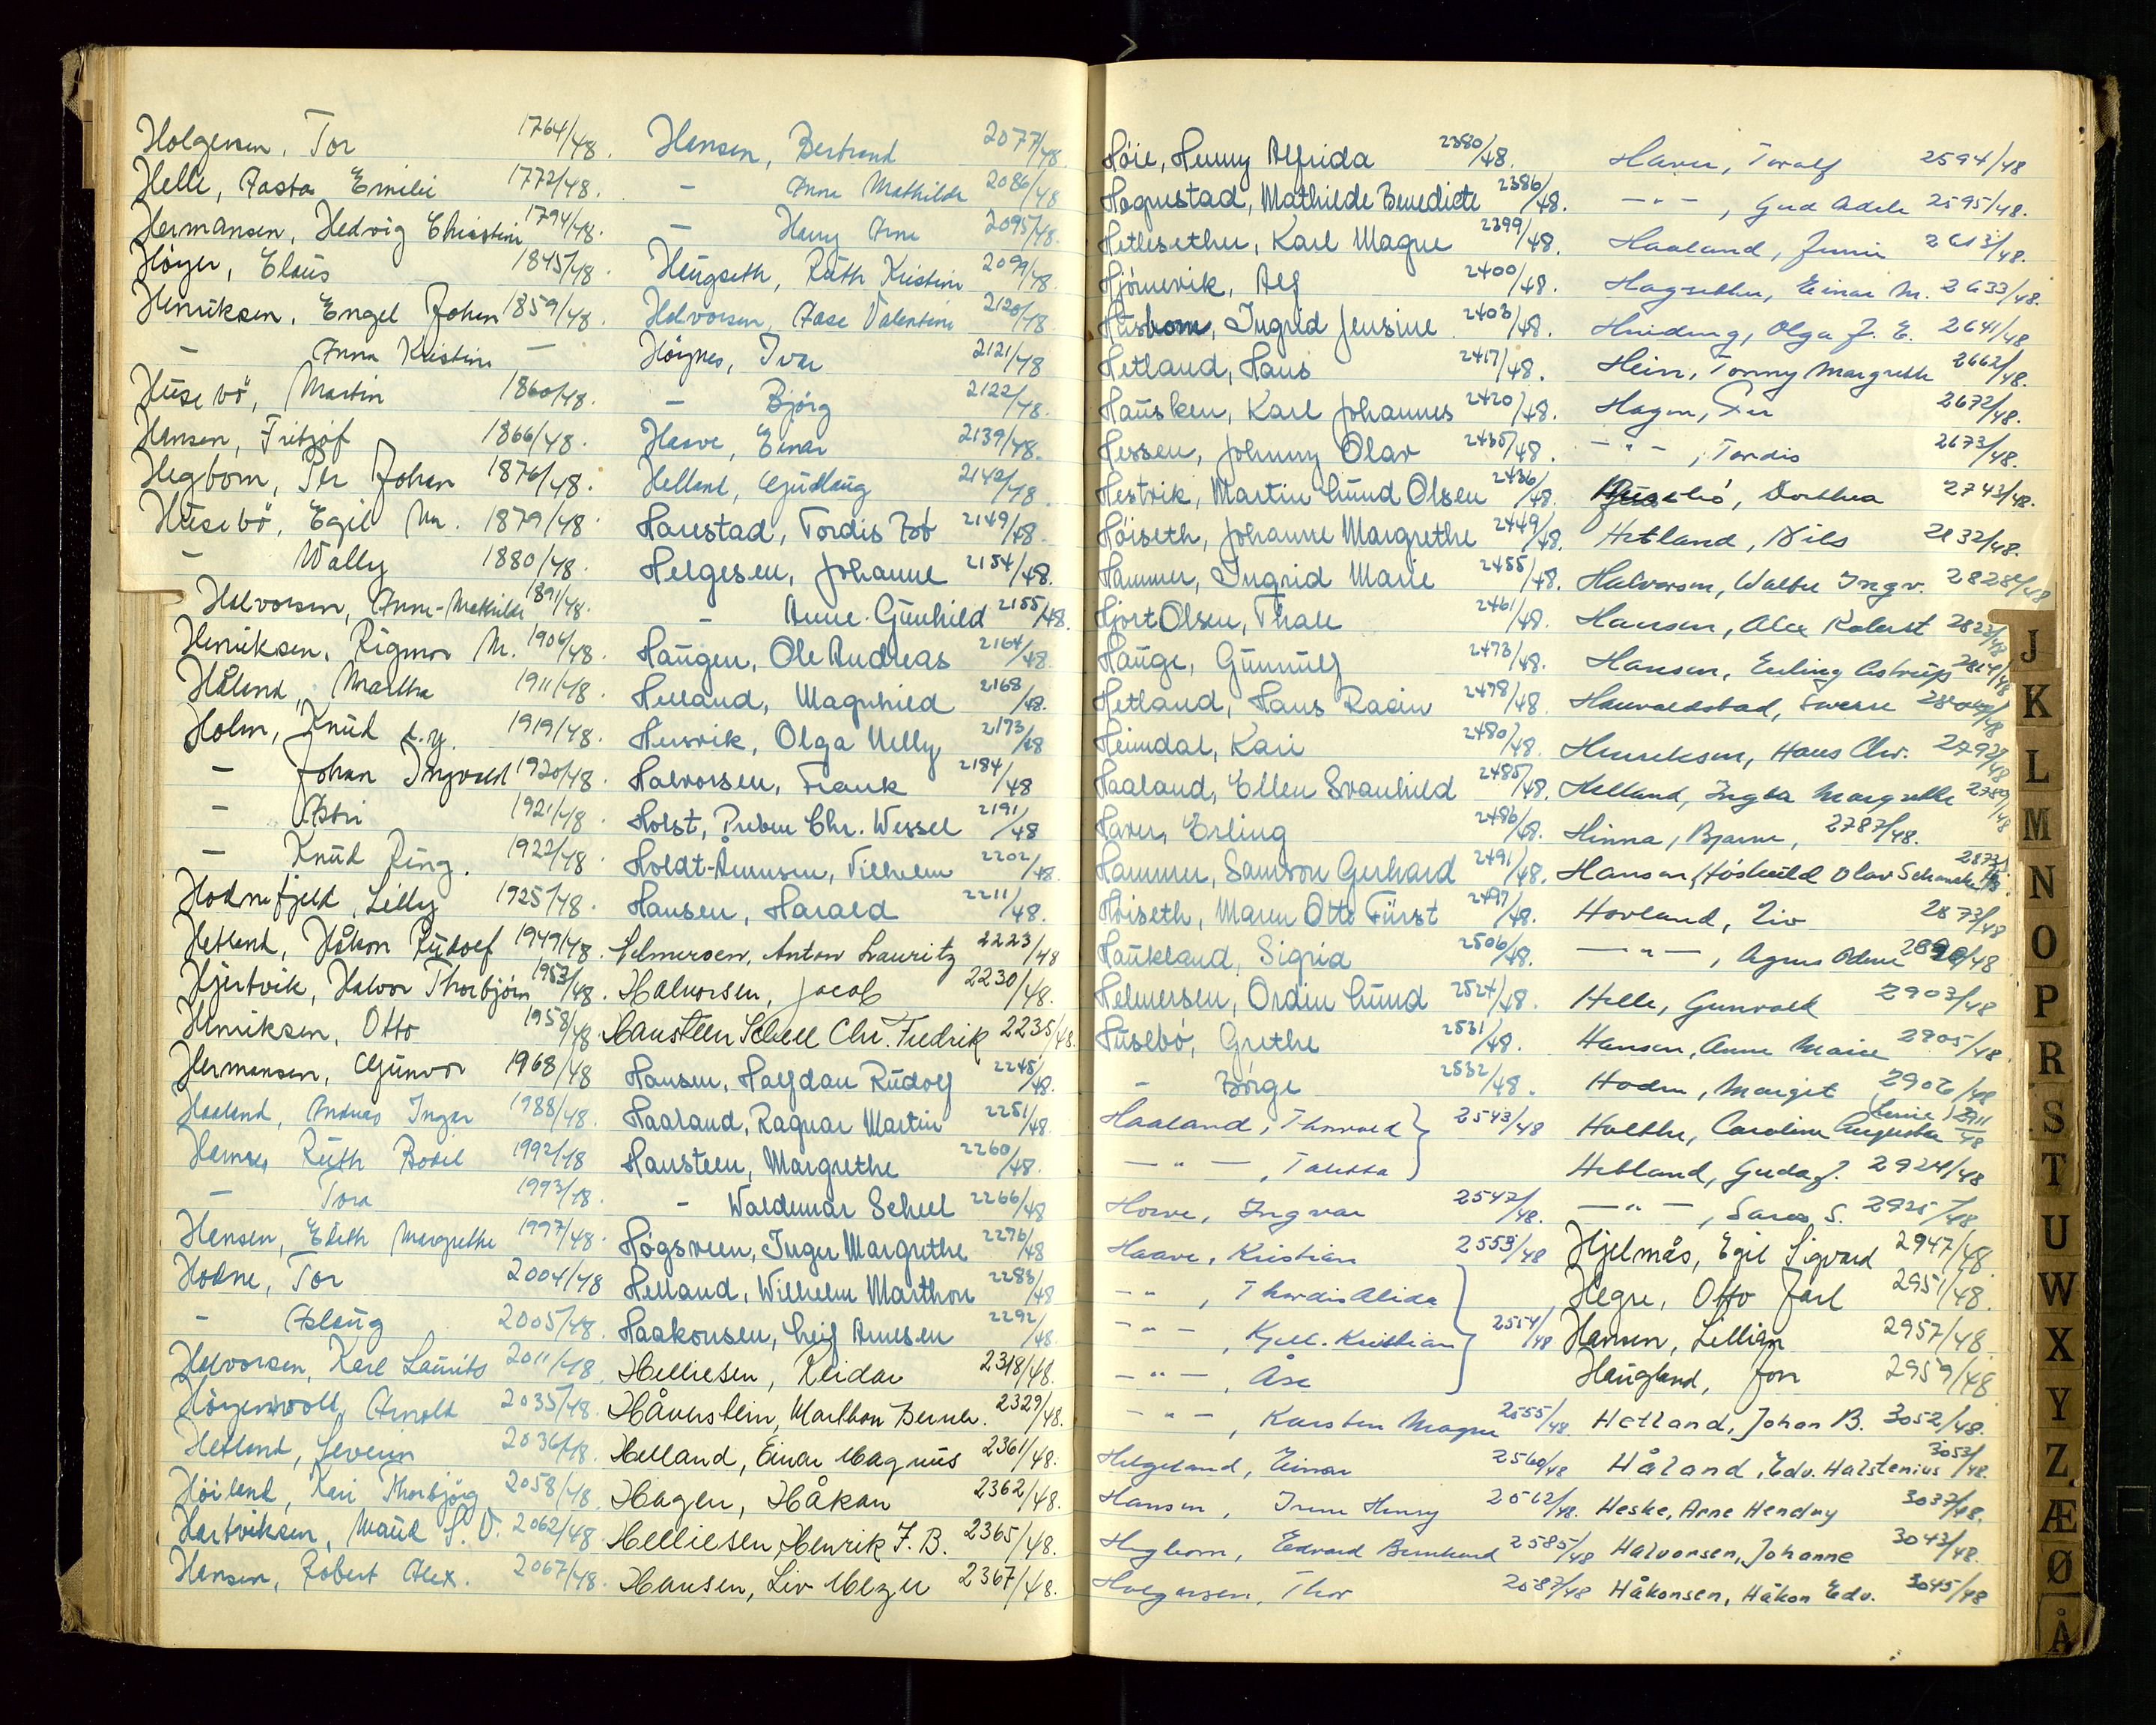 Holgersen, Tor 1764/48.
Helle, Aasta Emilie 1772/48.
Hermansen, Hedvig Christine 1794/48.
Höyer, Claus 1845/48
Henriksen, Engel Johan 1859/48.
— Anna Kristine —
Husebö, Martin 1860/48.
Hansen, Fritzjof 1866/48.
Hegbom, Per Johan 1876/48.
Husebö, Egil M. 1879/48
— Wally 1880/48.
Halvorsen, Anne-Mathilde 1891/48.
Henriksen, Rigmor M. 1906/48.
Håland, Martha 1911/48.
Holm, Knud d.y. 1919/48.
— Johan Ingvald 1920/48.
— Astri 1921/48
— Knud Ring. 1922/48
Hodnefjeld, Lilly 1925/48.
Hetland, Håkon Rudolf 1949/48.
Hjertvik, Halvor Thorbjörn 1953/48.
Henriksen, Otto 1958/48
Hermansen, Gunvor 1968/48
Haaland, Andreas Inger 1988/48.
Hernes, Ruth Bodil 1992/48
— Tora 1993/48.
Hansen, Edith Margrethe 1997/48.
Hodne, Tor 2004/48
— Aslaug 2005/48.
Halvorsen, Karl Laurits 2011/48
Hörgenvoll, Arnold 2035/48.
Hetland, Severin 2036/48.
Höiland, Kari Thorbjörg 2058/48
Hartviksen, Maud S. V. 2062/48
Hansen, Robert Alex. 2067/48.
Hansen, Bertrand 2077/48.
— Anne Mathilde 2086/48
— Harry Arne 2095/48.
Haugseth, Ruth Kristine 2099/48.
Halvorsen, Aase Valentine 2120/48
Höynes, Ivar 2121/48
— Björg 2122/48.
Haave, Einar 2139/48.
Helland, Gudlaug 2142/48
Harestad, Tordis 2149/48.
Helgesen, Johanne 2154/48.
— Anne Gunhild 2155/48.
Haugen, Ole Andreas 2164/48.
Helland, Magnhild 2168/48.
Hersvik, Olga Nelly 2173/48
Halvorsen, Frank 2184/48
Holst, Preben Chr. Wessel 2191/48
Holdt-Åmnsen, Vilhelm 2202/48.
Hansen, Harald 2211/48.
Helmersen, Anton Lauritz 2223/48
Halvorsen, Jacob 2230/48.
Hausteen Scheel Chr. Fredrik 2235/48.
Hansen, Halfdan Rudolf 2245/48.
Haaland, Ragnar Martin 2251/48.
Hansteen, Margrethe 2260/48.
— Waldemar Scheel 2266/48
Høgsveen, Inger Margrethe 2276/48
Helland, Wilhelm Marthon 2283/48
Haakonsen, Leif Arnesen 2292/48.
Helliesen, Reidar 2318/48.
Håverstein, Marthon Bernh. 2329/48.
Helland, Einar Magnus 2361/48.
Hagen, Håkan 2362/48.
Helliesen, Henrik F. B. 2365/48.
Hansen, Liv Meyer 2367/48.
Høie, Henny Alfrida 2380/48.
Høgnestad, Mathilde Benedicte 2386/48.
Hetlesether, Karl Magne 2399/48.
Hjörnevik, Alf 2400/48.
Husbom, Ingrid Jensine 2403/48.
Hetland, Hans 2417/48.
Hausken, Karl Johannes 2420/48.
Hessen, Johnny Olav 2435/48.
Hestvik, Martin Lund Olsen 2436/48.
Höiseth, Johanne Margrethe 2449/48.
Hammer, Ingrid Marie 2455/48.
Hjort Olsen, Thale 2461/48.
Hauge, Gunnulf 2473/48.
Hetland, Hans Racin 2478/48
Heimdal, Kari 2480/48.
Haaland, Ellen Svanhild 2485/48.
Haver, Erling 2486/48.
Hammer, Samson Gerhard 2491/48.
Höiseth, Maren Otte Fürst 2497/48.
Haukland, Sigrid 2506/48.
Helmersen, Ordin Lund 2524/48.
Husebö, Grethe 2531/48.
— Börge 2532/48.
Haaland, Thorvald 2543/48
— " —, Taletta
Howe, Ingvar 2547/48.
Haave, Kristian 2553/48
— " , Thordis Alida
— " —, Kjell-Kristian 2554/48
— " —, Åse
— " —, Karsten Magne 2555/48.
Helgeland, Einar 2560/48
Hansen, Irene Henny 2562/48.
Hegbom, Edvard Bernhard 2585/48
Holgersen, Thor 2587/48
Haver, Toralf 2594/48
— " —, Gud Adele 2595/48.
Haaland, Jenni 2613/48.
Hagsether, Einar M. 2633/48.
Hviding, Olga J. E. 2641/48
Hein, Tonny Margrethe 2662/48.
Hagen, Per 2672/48.
— " —, Tordis 2673/48.
Husebö, Dorthea 2743/48.
Hetland, Nils 2832/48.
Halvorsen, Walter Ingv. 2828/48
Hansen, Alex Robert 2823/48
Hansen, Erling Astrup 2814/48
Hauvaldstad, Sverre 2804/48
Henriksen, Hans Chr. 2792/48
Helland, Ingba Margrethe 2789/48
Hinna, Bjarne, 2787/48.
Hansen, Höskuld Olav Schanche 2873/48.
Hovland, Liv 2873/48
— " —, Agnes Odene 2890/48
Helle, Gunvald 2903/48
Hansen, Anne Marie 2905/48
Hodne, Margit 2906/48
Holthe, Caroline Augusta (Lovise) 2911/48
Hetland, Guda J. 2924/48
— " —, Sara S. 2925/48
Hjelmås, Egil Sigvard 2947/48.
Hegre, Otto Jarl 2951/48.
Hansen, Lillian 2957/48
Haugland, Jon 2959/48
Hetland, Johan B. 3052/48.
Håland, Edv. Halstenius 3053/48.
Heske, Arne Hendny 3037/48.
Halvorsen, Johanne 3043/48.
Håkonsen, Håkon Edv. 3045/48
J
K
L
M
N
O
P
R
S
T
U
W
X
Y
Z
Æ
Ø
Å